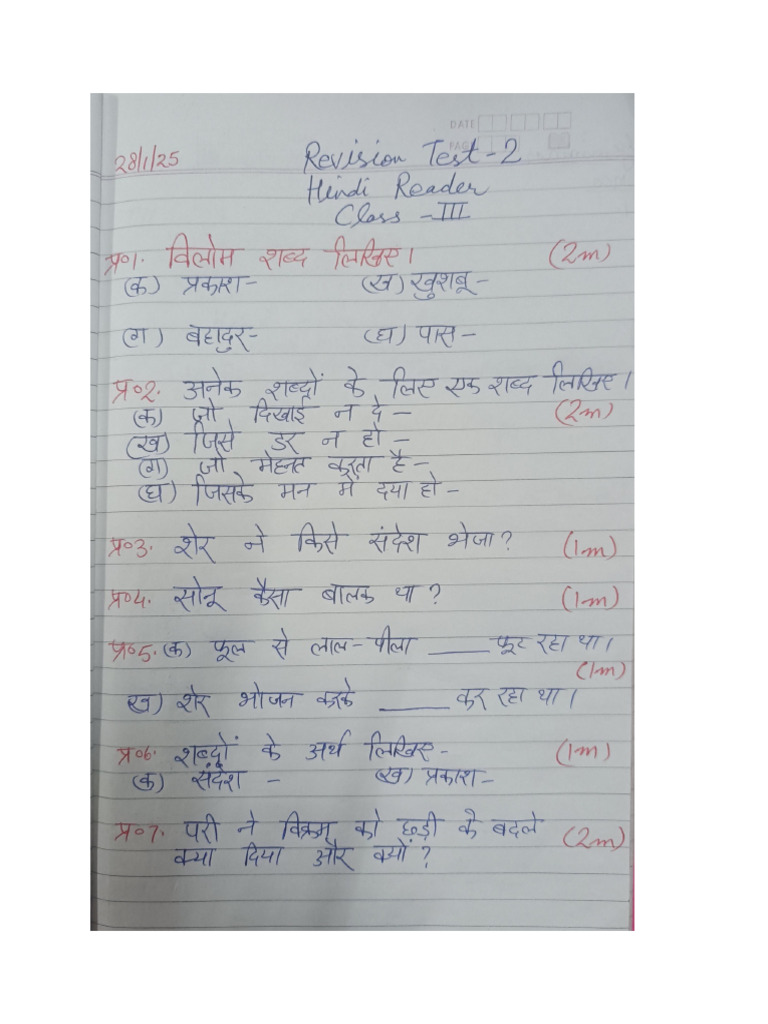 DATE
PAGE
28/1/25 Revision Test-2
Hindi Reader
Class - III
प्र०1. विलोम शब्द लिखिए। (2m)
(क) प्रकाश- (ख) खुशबू-
(ग) बहादुर- (घ) पास-
प्र०2. अनेक शब्दों के लिए एक शब्द लिखिए।
(क) जो दिखाई न दे - (2m)
(ख) जिसे डर न हो -
(ग) जो मेहनत करता है-
(घ) जिसके मन में दया हो-
प्र०3. शेर ने किसे संदेश भेजा? (1m)
प्र०4. सोनू कैसा बालक था? (1m)
प्र०5. (क) फूल से लाल-पीला ____ फूट रहा था।
(1m)
ख) शेर भोजन करके _____ कर रहा था।
प्र०6. शब्दों के अर्थ लिखिए- (1m)
(क) संदेश - (ख) प्रकाश-
प्र०7. परी ने विक्रम को छड़ी के बदले (2m)
क्या दिया और क्यों?